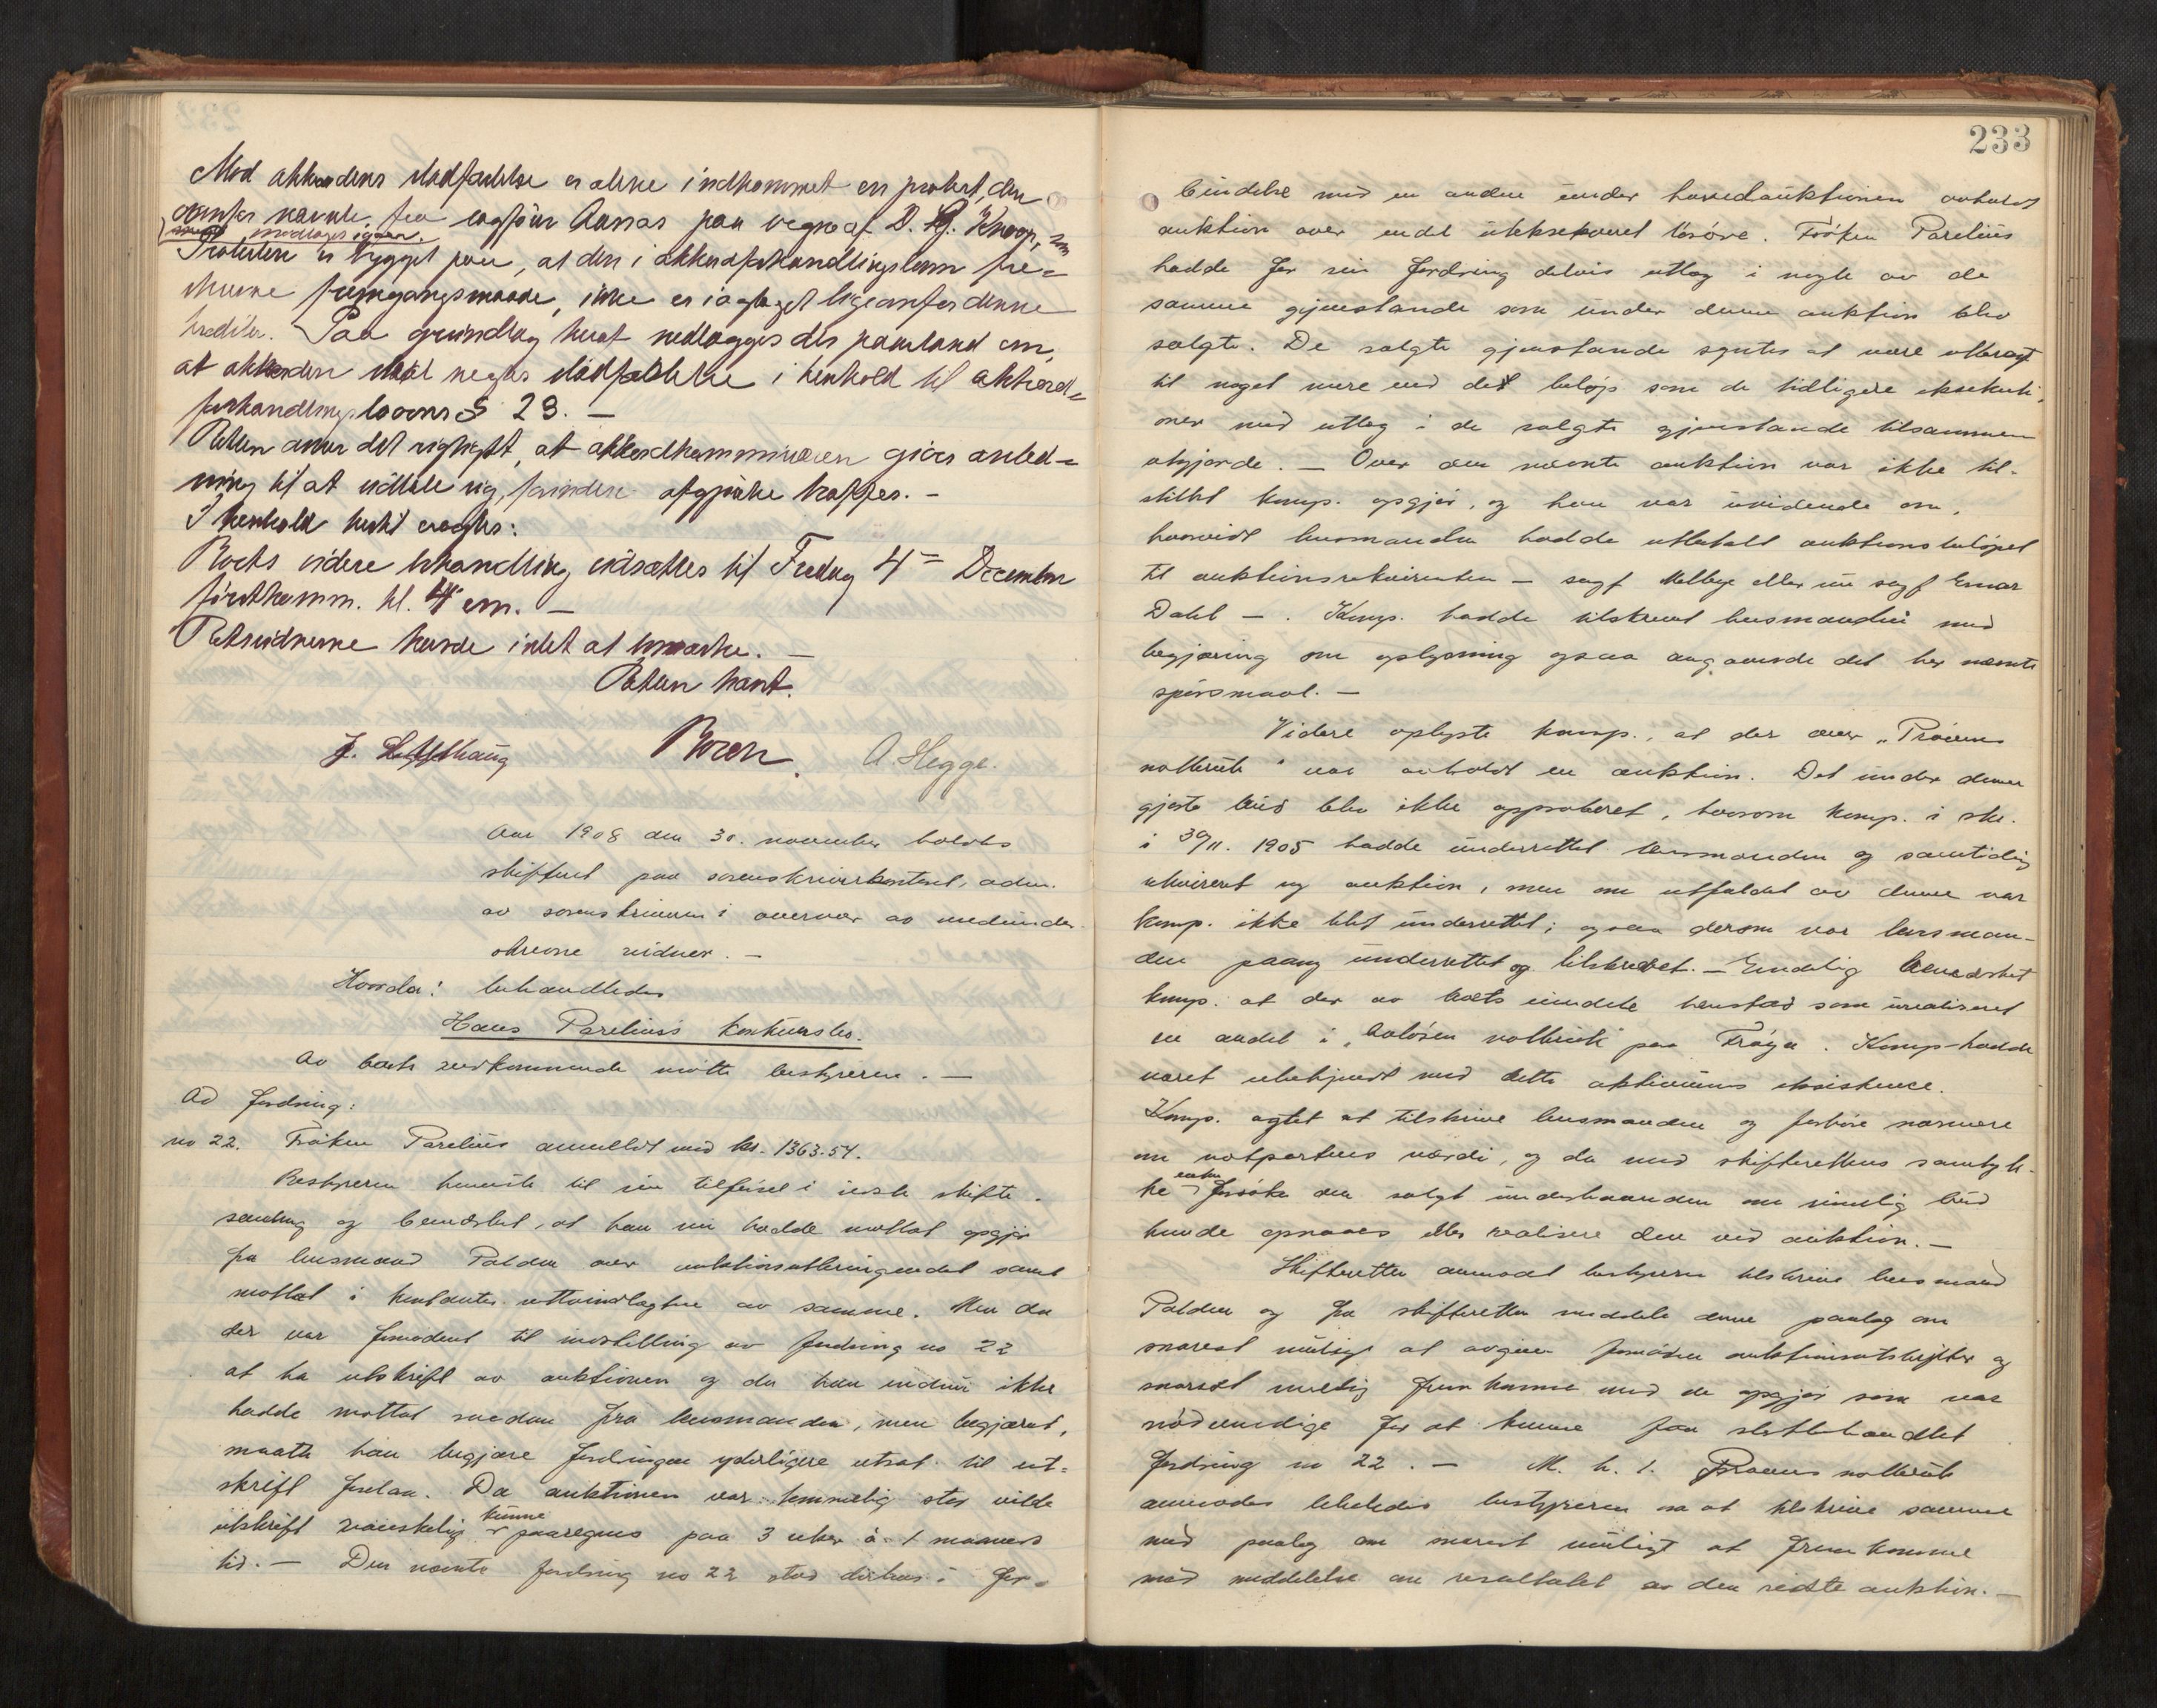 Mod akkordens stadfæstelse er alene indkommet en protest, den
fra sagfører Aassas paa vegne af D. G. Knoop, som
modtages igaar.
Protesten er bygget paa, at den i akkordforhandlingsloven fore=
skrevne fremgangsmaade, ikke er iagtaget ligeoverfor denne
kreditor. Paa grundlag heraf nedlægges der paastand om,
at akkorden skal negtes stadfæstelse i henhold til akkord=
forhandlingslovens § 29. —
Retten anser det rigtigst, at akkordkommissæren gives anled=
ning til at udtale sig, forinden afgjørelse træffes. —
I henhold hertil eragtes:
Boets videre behandling udsættes til Fredag 4de December
førstkomm. kl. 4 em. —
Retsvidnerne havde intet at bemærke. —
Retten hævet.
Boren A. Hegge.
Aar 1908 den 30. november holdtes
skifteret paa sorenskriverkontoret, adm.
av sorenskriveren i overvær av medunder-
skrevne vidner. —
Hvorda: behandledes
Hans Parelius's konkursbo.
Av boets vedkommende møtte bestyreren. —
Ad fordring:
no 22. Frøken Parelius anmeldt med kr. 1363.54.
Bestyreren henviste til sin tilførsel i sidste skifte-
samling og bemerket, at han nu hadde mottat opgjør
fra lensmand Palden over auktionsutbringendet samt
mottat i kontanter nettoindtægten av samme. Men da
det var fornødent til indstilling av fordring no 22
at ha utskrift av auktionen og da han endnu ikke
hadde mottat saadan fra lensmanden, men begjæret,
maatte han begjære fordringen yderligere utsat til ut=
skrift forelaa. Da auktionen var temmelig stor vilde
utskrift vanskelig kunne paaregnes paa 3 uker à 1 maaneds
tid. — Den nævnte fordring no 22 stod dessuten i for=
233
bindelse med en anden under hovedauktionen avholdt
auktion over endel utekseqveret løsøre. Frøken Parelius
hadde for sin fordring delvis utlæg i nogle av de
samme gjenstande som under denne auktion blev
solgte. De solgte gjenstande syntes at være utbragt
til noget mere end det beløp som de tidligere eksekuti-
oner med utlæg i de solgte gjenstande tilsammen
utgjorde. — Over den nævnte auktion var ikke til-
stillet komp. opgjør, og han var uvidende om,
hvorvidt lensmanden hadde utbetalt auktionsbeløpet
til auktionsrekvirenten — sagf. Melbye eller nu sagf Einar
Dahl —. Komp. hadde tilskrevet lensmanden med
begjæring om oplysning ogsaa angaaende det her nævnte
spørsmaal. —
Videre oplyste komp., at der over „Prøvens
notbruk" var avholdt en auktion. Det under denne
gjorte bud blev ikke approberet, hvorom komp. i skr.
i 30/11. 1905 hadde underrettet lensmanden og samtidig
rekvireret ny auktion, men om utfaldet av denne var
komp. ikke blit underrettet; ogsaa derom var lensman-
den paany underrettet og tilskrevet. — Endelig bemerket
komp. at der av boets midler henstod som urealiseret
en andel i notbruk paa Frøya. Komp. hadde
været ubekjendt med dette aktivums eksistence.
Komp. agtet at tilskrive lensmanden og forhøre nærmere
om notpartens værdi, og da med skifterettens samtyk-
ke enten forsøke den solgt underhaanden om rimelig bud
kunde opnaaes eller realisere den ved auktion. —
Skifteretten anmodet bestyreren tilskrive lensmand
Palden og fra skifteretten meddele denne paalæg om
snarest muligst at avgive fornøden auktionsutskrifter og
snarest muelig fremkomme med de opgjør som var
nødvendige for at kunne faa sluttbehandlet
fordring no 22. — M. h. t. Prøvens notbruk
anmodes likeledes bestyreren om at tilskrive samme
med paalæg om snarest muligt at fremkomme
med meddelelse om resultatet av den sidste auktion. —